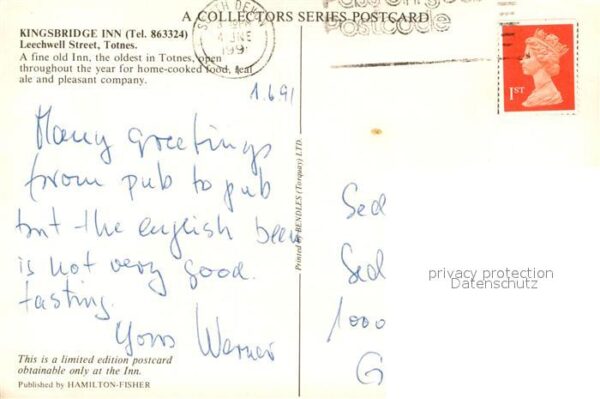 A COLLECTORS SERIES POSTCARD
KINGSBRIDGE INN (Tel. 863324)
Leechwell Street, Totnes.
A fine old Inn, the oldest in Totnes, open
throughout the year for home-cooked food, real
ale and pleasant company.
SOUTH DEVON
4 JNE
1991
Postcode
1ST
1.6.91
Many greetings
from pub to pub
but the english beer
is not very good
tasting.
Yours Werner
Printed by BENDLES (Torquay) LTD.
Sed
Sed
1000
G
privacy protection
Datenschutz
This is a limited edition postcard
obtainable only at the Inn.
Published by HAMILTON-FISHER